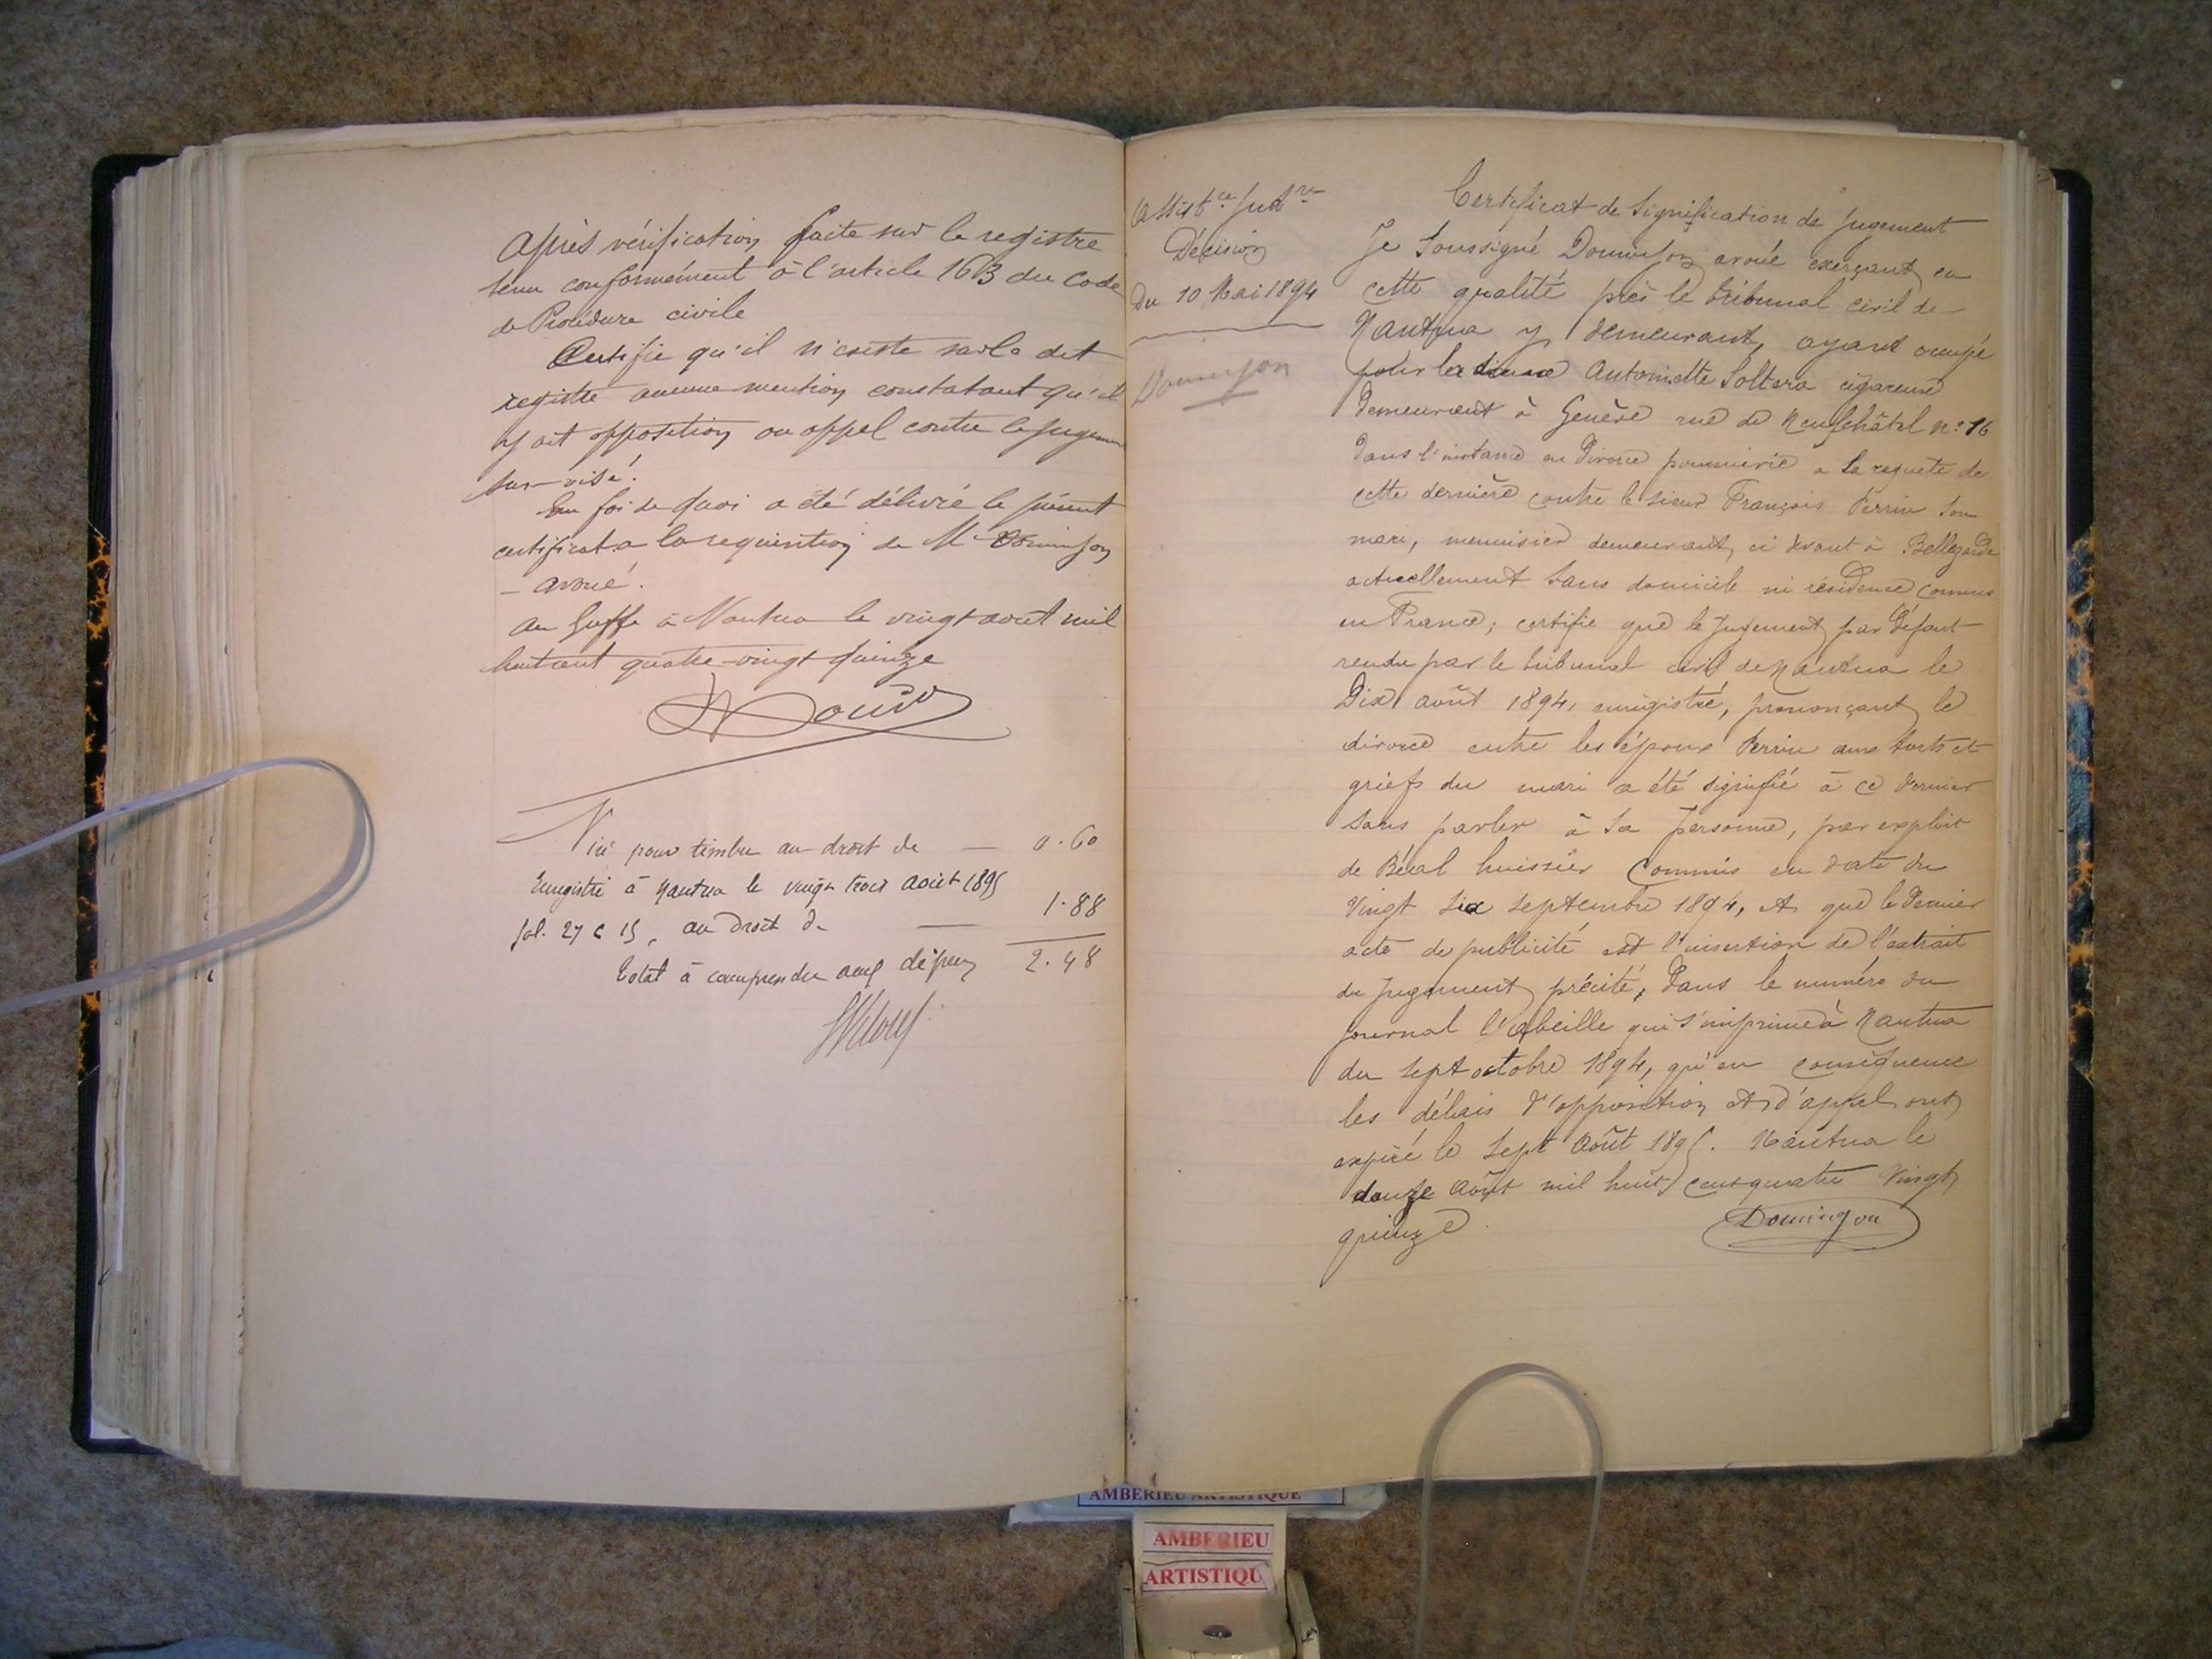 Après vérification faite sur le registre
tenu conformément à l'article 163 du Code
de Procédure civile
Certifie qu'il n'existe sur le dit
registre aucune mention constatant qu'il
y ait opposition ou appel contre le jugement
sus-visé.
En foi de quoi a été délivré le présent
certificat a la requisition de Me Domingon
- avoué.
au Greffe à Nantua le vingt août mil
huit cent quatre-vingt quinze
Visé pour timbre au droit de — 0.60
Enregistré à Nantua le vingt trois août 1895
fol. 27 c 15, au droit de — 1.88
Total à comprendre aux dépens 2.48
Assistce Judre
Décision
du 10 Mai 1894
Domingon
Certificat de Signification de Jugement
Je Soussigné Domingon avoué exerçant en
cette qualité près le tribunal civil de
Nantua y demeurant, ayant occupé
pour la dame Antoinette Soltera cigareuse
demeurant à Genève rue de Neufchâtel n° 16
dans l'instance en divorce poursuivie a la requete de
cette dernière contre le sieur François Perrin son
mari, menuisier demeurant, ci devant à Bellegarde
actuellement sans domicile ni résidence connus
en France; certifie que le Jugement par défaut
rendu par le tribunal civil de Nantua le
Dix août 1894, enregistré, prononçant le
divorce entre les époux Perrin aux torts et
griefs du mari a été signifié à ce dernier
sans parler à sa personne, par exploit
de Béal huissier commis en date du
Vingt Six Septembre 1894, et que le dernier
acte de publicité est l'insertion de l'extrait
du jugement précité, dans le numéro du
journal l'Abeille qui s'imprime à Nantua
du sept octobre 1894, qu'en conséquence
les délais d'opposition et d'appel ont
expiré le sept Août 1895. Nantua le
douze Août mil huit cent quatre Vingt
quinze.
Domingon
AMBERIEU ARTISTIQUE
AMBERIEU
ARTISTIQU